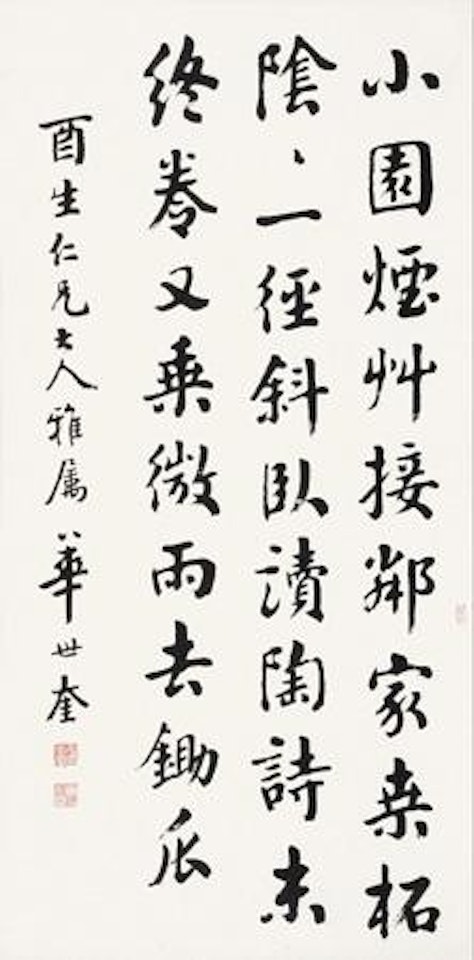 小園煙艸接鄰家桒柘
陰〻一徑斜臥讀陶詩未
終卷又乘微雨去鋤瓜
酉生仁兄大人雅屬 華世奎